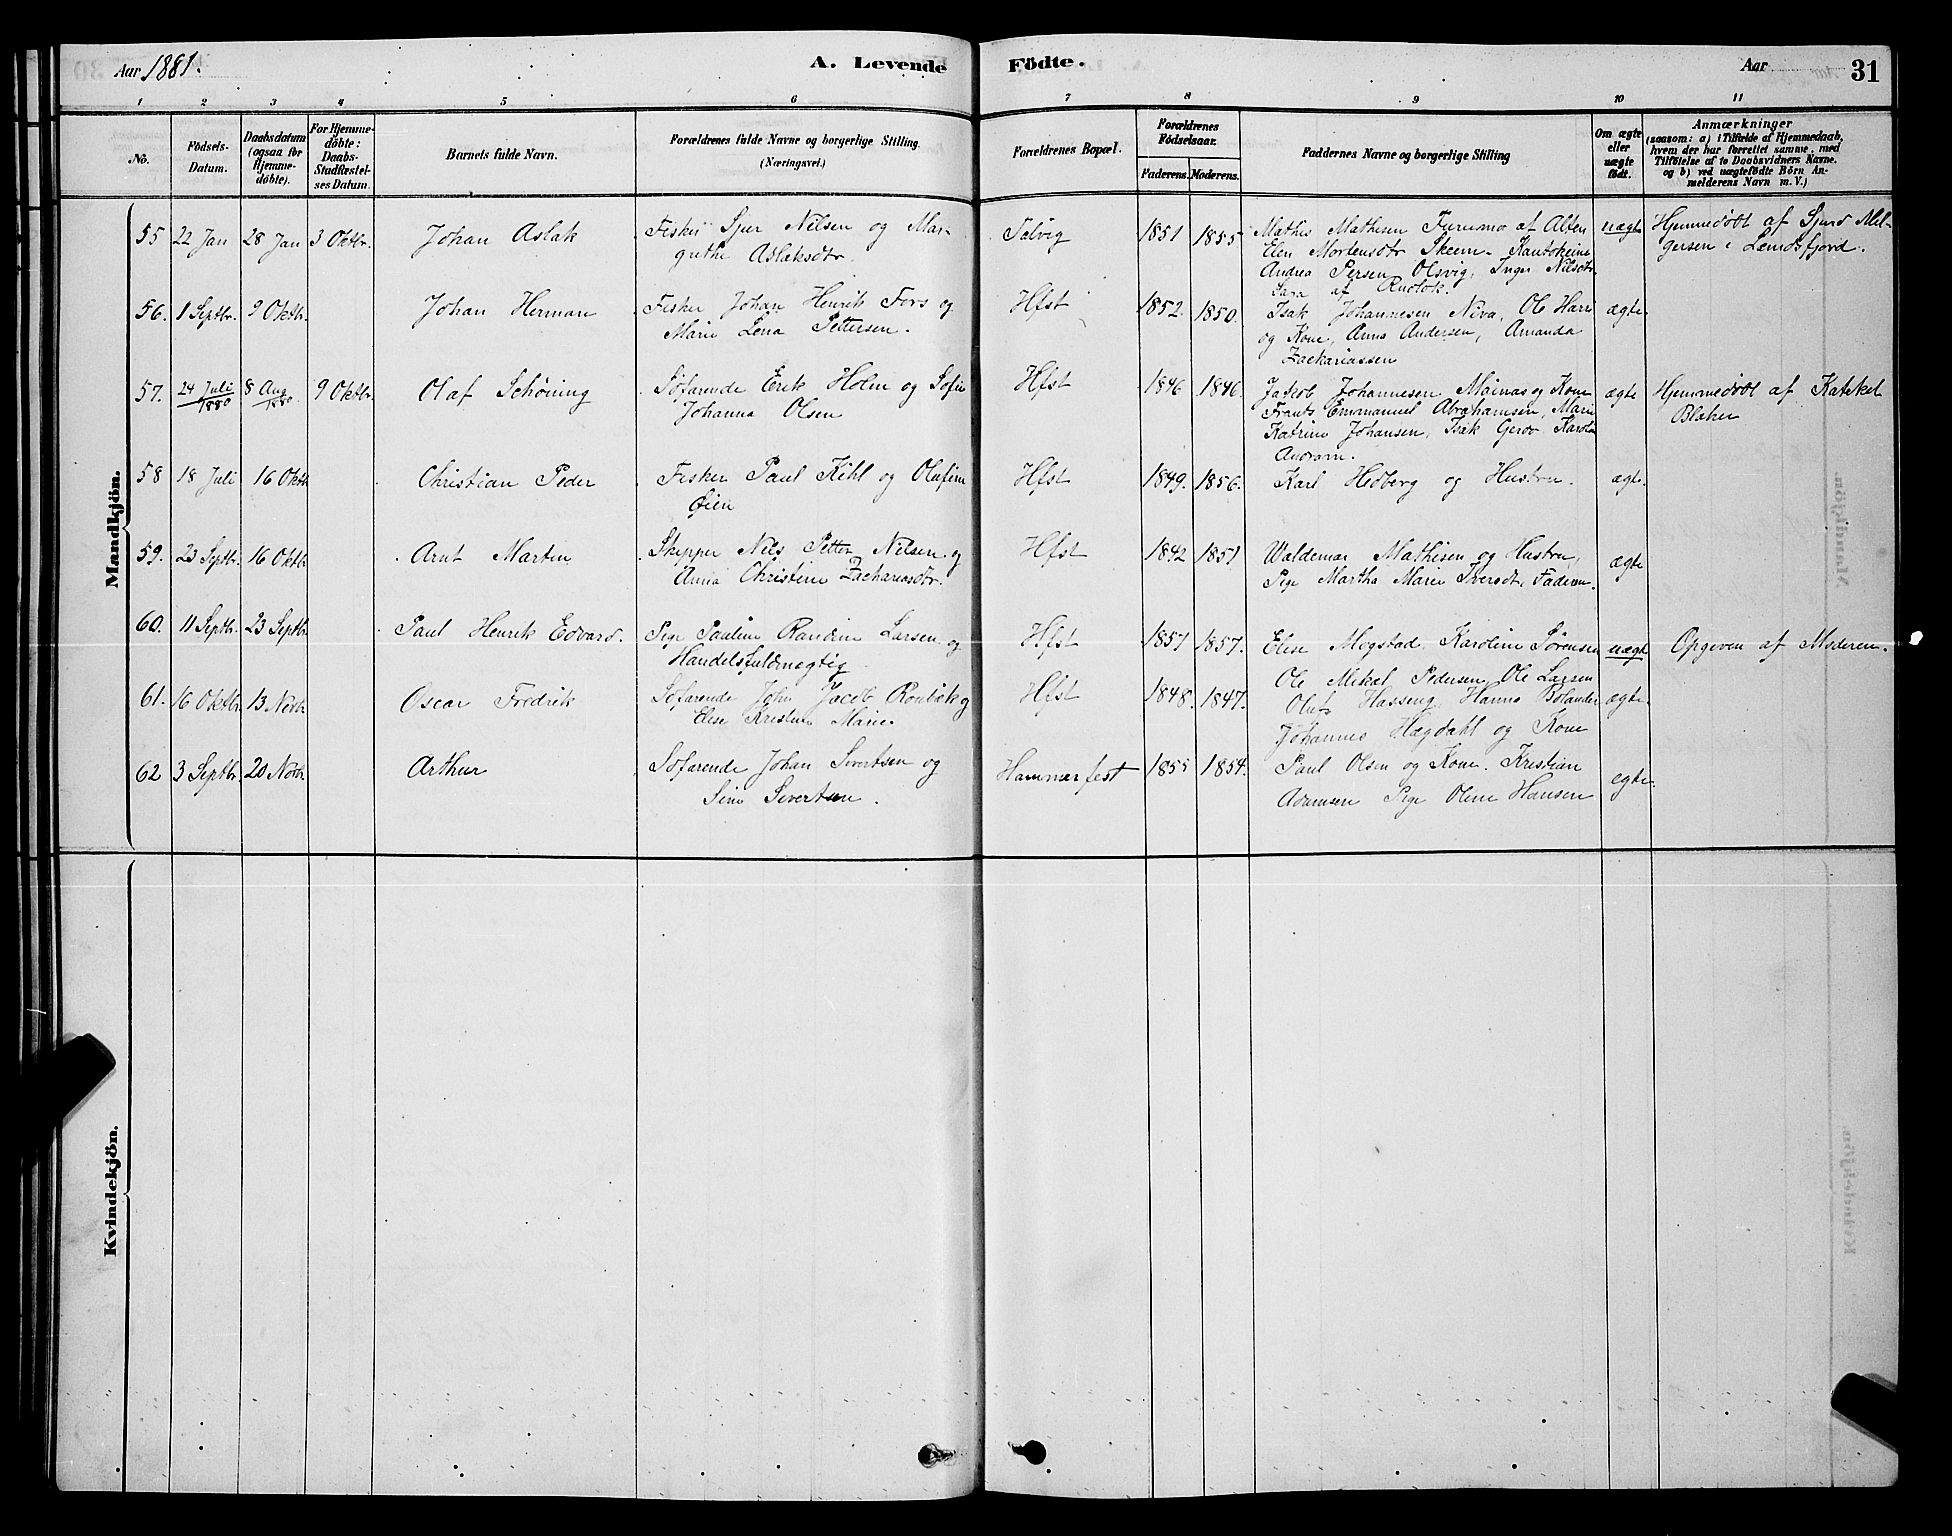 Aar 1881.
A. Levende Födte.
Aar
31
1 2 3 4 5 6 7 8 9 10 11
No.
Födsels-
Datum.
Daabsdatum
(ogsaa for
Hjemme-
döbte).
For Hjemme-
döbte:
Daabs-
Stadfæstel-
ses Datum.
Barnets fulde Navn.
Forældrenes fulde Navne og borgerlige Stilling.
(Næringsvei.)
Forældrenes Bopæl.
Forældrenes
Födselsaar.
Faderens. Moderens.
Faddernes Navne og borgerlige Stilling
Om ægte
eller
uægte
födt.
Anmærkninger
(saasom: a) i Tilfælde af Hjemmedaab,
hvem der har forrettet samme, med
Tilföielse af to Daabsvidners Navne.
og b) ved uægtefödte Börn An-
melderens Navn m. V.)
Mandkjön.
55 22 Jan 28 Jan 3 Oktbr. Johan Aslak
Fisker Sjur Nilsen og Mar-
grethe Aslaksdtr.
Talvig 1851 1855
Mathis Mathisen Furumo af Alten
Elen Mortensdtr Skeem. Kautokeino
Andrea Persen Olsvig, Inger Nilsdtr
Sara af
uægte
Hjemmedöbt af Sjurd Mel-
gersen i Lerredsfjord.
56. 1 Septbr. 9 Oktbr. Johan Herman
Fisker Johan Henrik Fors og
Marie Lena Pettersen.
Hfst 1852. 1850.
Isak Johannesen Niva, Ole Harri
og Kone, Anna Andersen, Amanda
Zackariassen
ægte
57. 24 Juli 1880 8 Aug 1880. 9 Oktbr. Olaf Schöning
Söfarende Erik Holm og Sofie
Johanna Olsen
Hfst 1846 1846.
Jakob Johannesen Mainas og Kone
Frants Emmanuel Abrahamsen, Marie
Katrine Johansen, Isak Karol
ægte
Hjemmedöbt af Kateket
Blæker
58 18 Juli 16 Oktbr Christian Peder
Fisker Paul Kihl og Olafine
Öien
Hfst 1849. 1856.
Karl Hedberg og Hustru.
ægte.
59. 23 Septbr. 16 Oktbr. Arnt Martin
Skipper Nils Petter Nilsen og
Anna Christine Zachariasdtr.
Hfst 1842 1851
Waldemar Mathisen og Hustru,
Pige Martha Marie Iversdtr, Faderen.
ægte
60. 11 Septbr. 23 Septbr Paul Henrik Edvard.
Pige Pauline Randine Larsen og
Handelsfuldmægtig
Hfst 1857 1857.
Elise Mogstad, Karoline Sörensen
Ole Mikal Pedersen, Ole Larsen
uægte
Opgiven af Moderen.
61. 16 Oktbr. 13 Novbr Oscar Fredrik
Söfarende John Jacob og
Elise Kristine Marie
Hfst 1848. 1847.
Olaf Hasseng, Hanna Bolander
Johannes Hægdahl og Kone
ægte.
62 3 Septbr. 20 Novbr Arthur
Söfarende Johan Sivertsen og
Sine Sivertsen.
Hammerfest 1855 1854.
Paul Olsen og Kone. Kristian
Adamsen Pige Oline Hansen
ægte.
Kvindekjön.